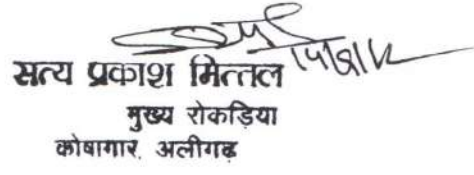 सत्य प्रकाश मित्तल
मुख्य रोकड़िया
कोषागार, अलीगढ़